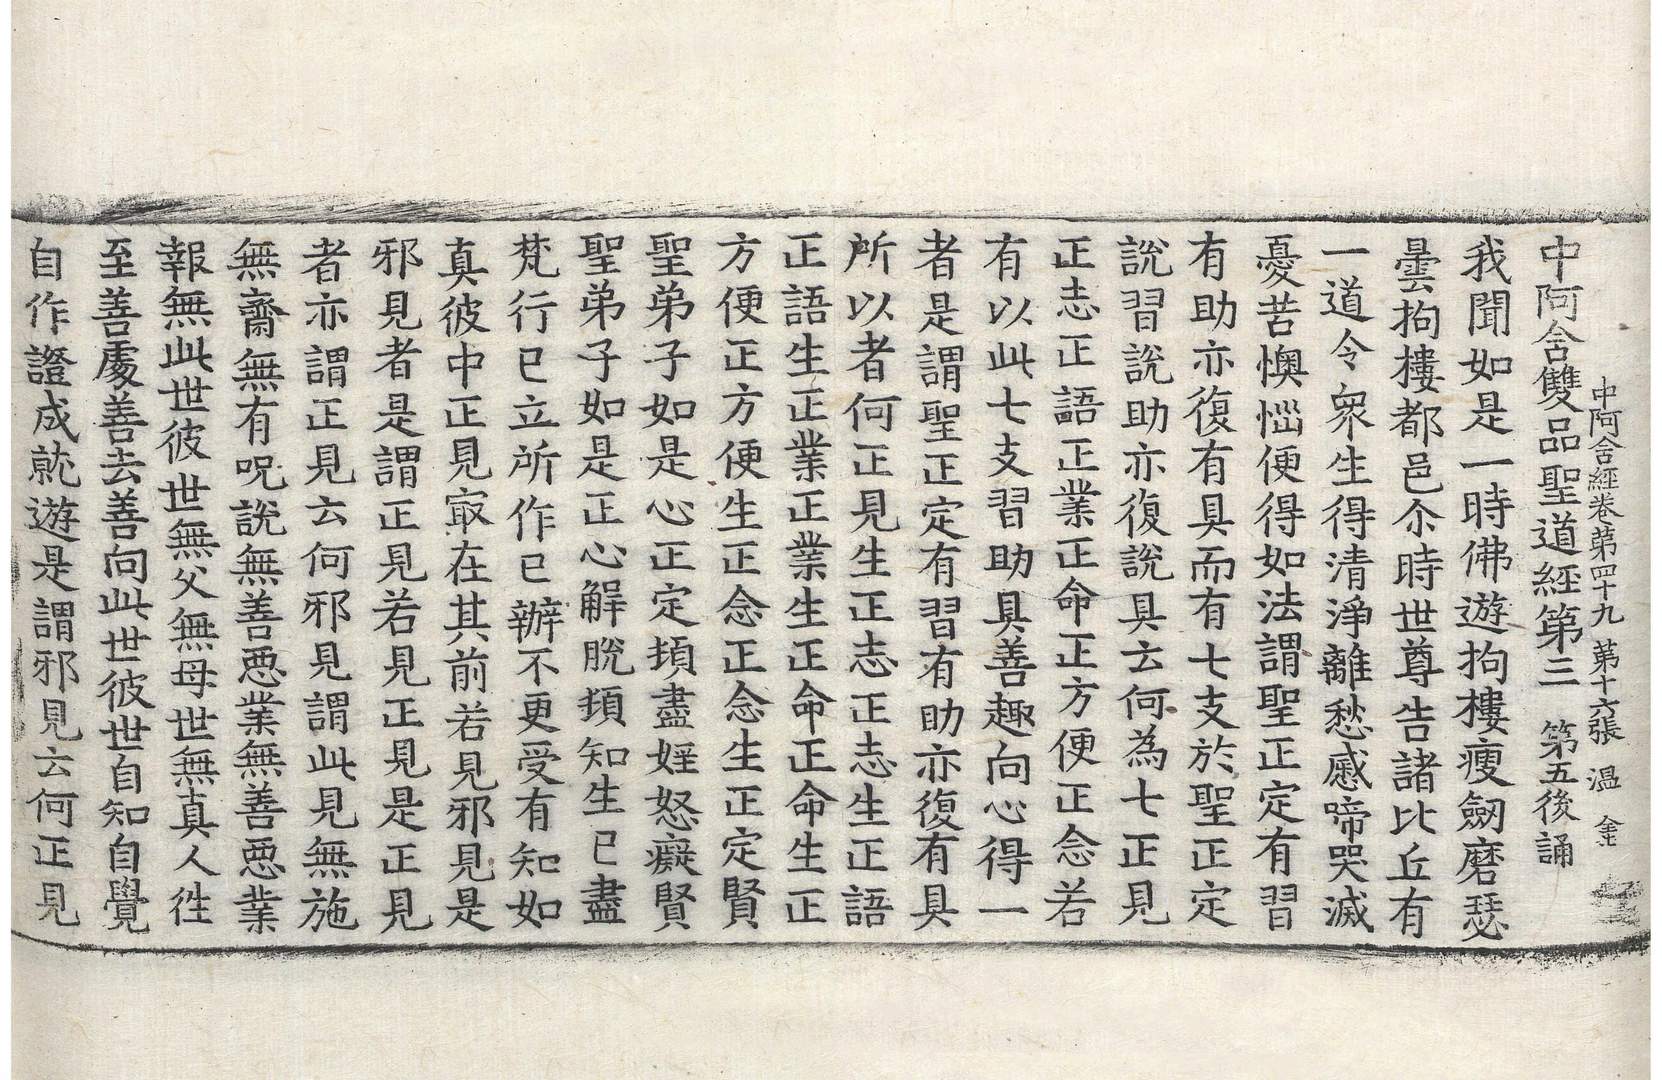 中阿含經卷第四十九 第十六張 溫
中阿含雙品聖道經第三 第五後誦
我聞如是一時佛遊拘樓瘦劒磨瑟
曇拘樓都邑尒時世尊告諸比丘有
一道令衆生得清淨離愁慼啼哭滅
憂苦懊惱便得如法謂聖正定有習
有助亦復有具而有七支於聖正定
說習說助亦復說具云何為七正見
正志正語正業正命正方便正念若
有以此七支習助具善趣向心得一
者是謂聖正定有習有助亦復有具
所以者何正見生正志正志生正語
正語生正業正業生正命正命生正
方便正方便生正念正念生正定賢
聖弟子如是心正定頓盡婬怒癡賢
聖弟子如是正心解脫頓知生已盡
梵行已立所作已辦不更受有知如
真彼中正見㝡在其前若見邪見是
邪見者是謂正見若見正見是正見
者亦謂正見云何邪見謂此見無施
無齋無有呪說無善惡業無善惡業
報無此世彼世無父無母世無真人徃
至善處善去善向此世彼世自知自覺
自作證成就遊是謂邪見云何正見